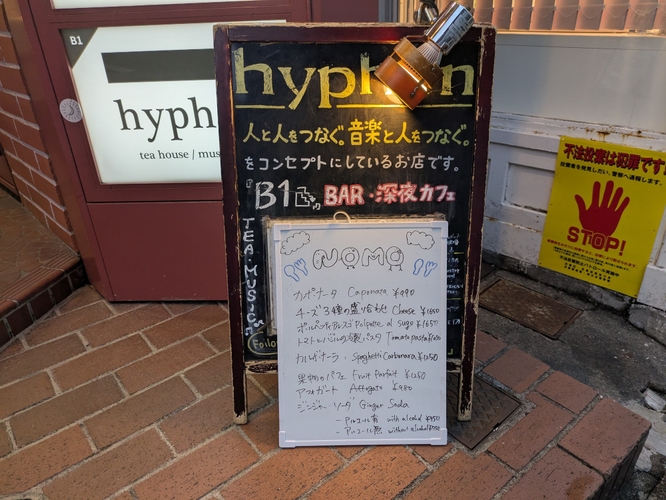 B1
hyph
tea house / mus
hyphen
人と人をつなぐ。音楽と人をつなぐ。
をコンセプトにしているお店です。
B1 BAR・深夜カフェ
TEA MUSIC
Follo
NOMO
カポナータ Caponata ¥990
チーズ3種の盛り合わせ Cheese
Polpette al Sugo ¥1650
Tomato pasta
カルボナーラ Spaghetti Carbonara ¥1250
果物のパフェ Fruit Parfait ¥1250
アフォガート Affogato ¥980
ジンジャーソーダ Ginger Soda
- アルコール有 with alcohol ¥950
- アルコール無 without alcohol
不法投棄は犯罪です!
投棄者を発見しだい、警察へ通報します。
STOP!